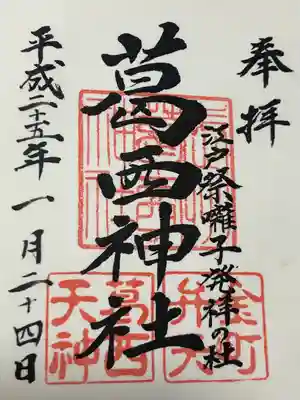 奉拝
江戸祭囃子発祥の社
葛西神社
平成二十五年一月二十四日
葛西
天神
金町
弁天